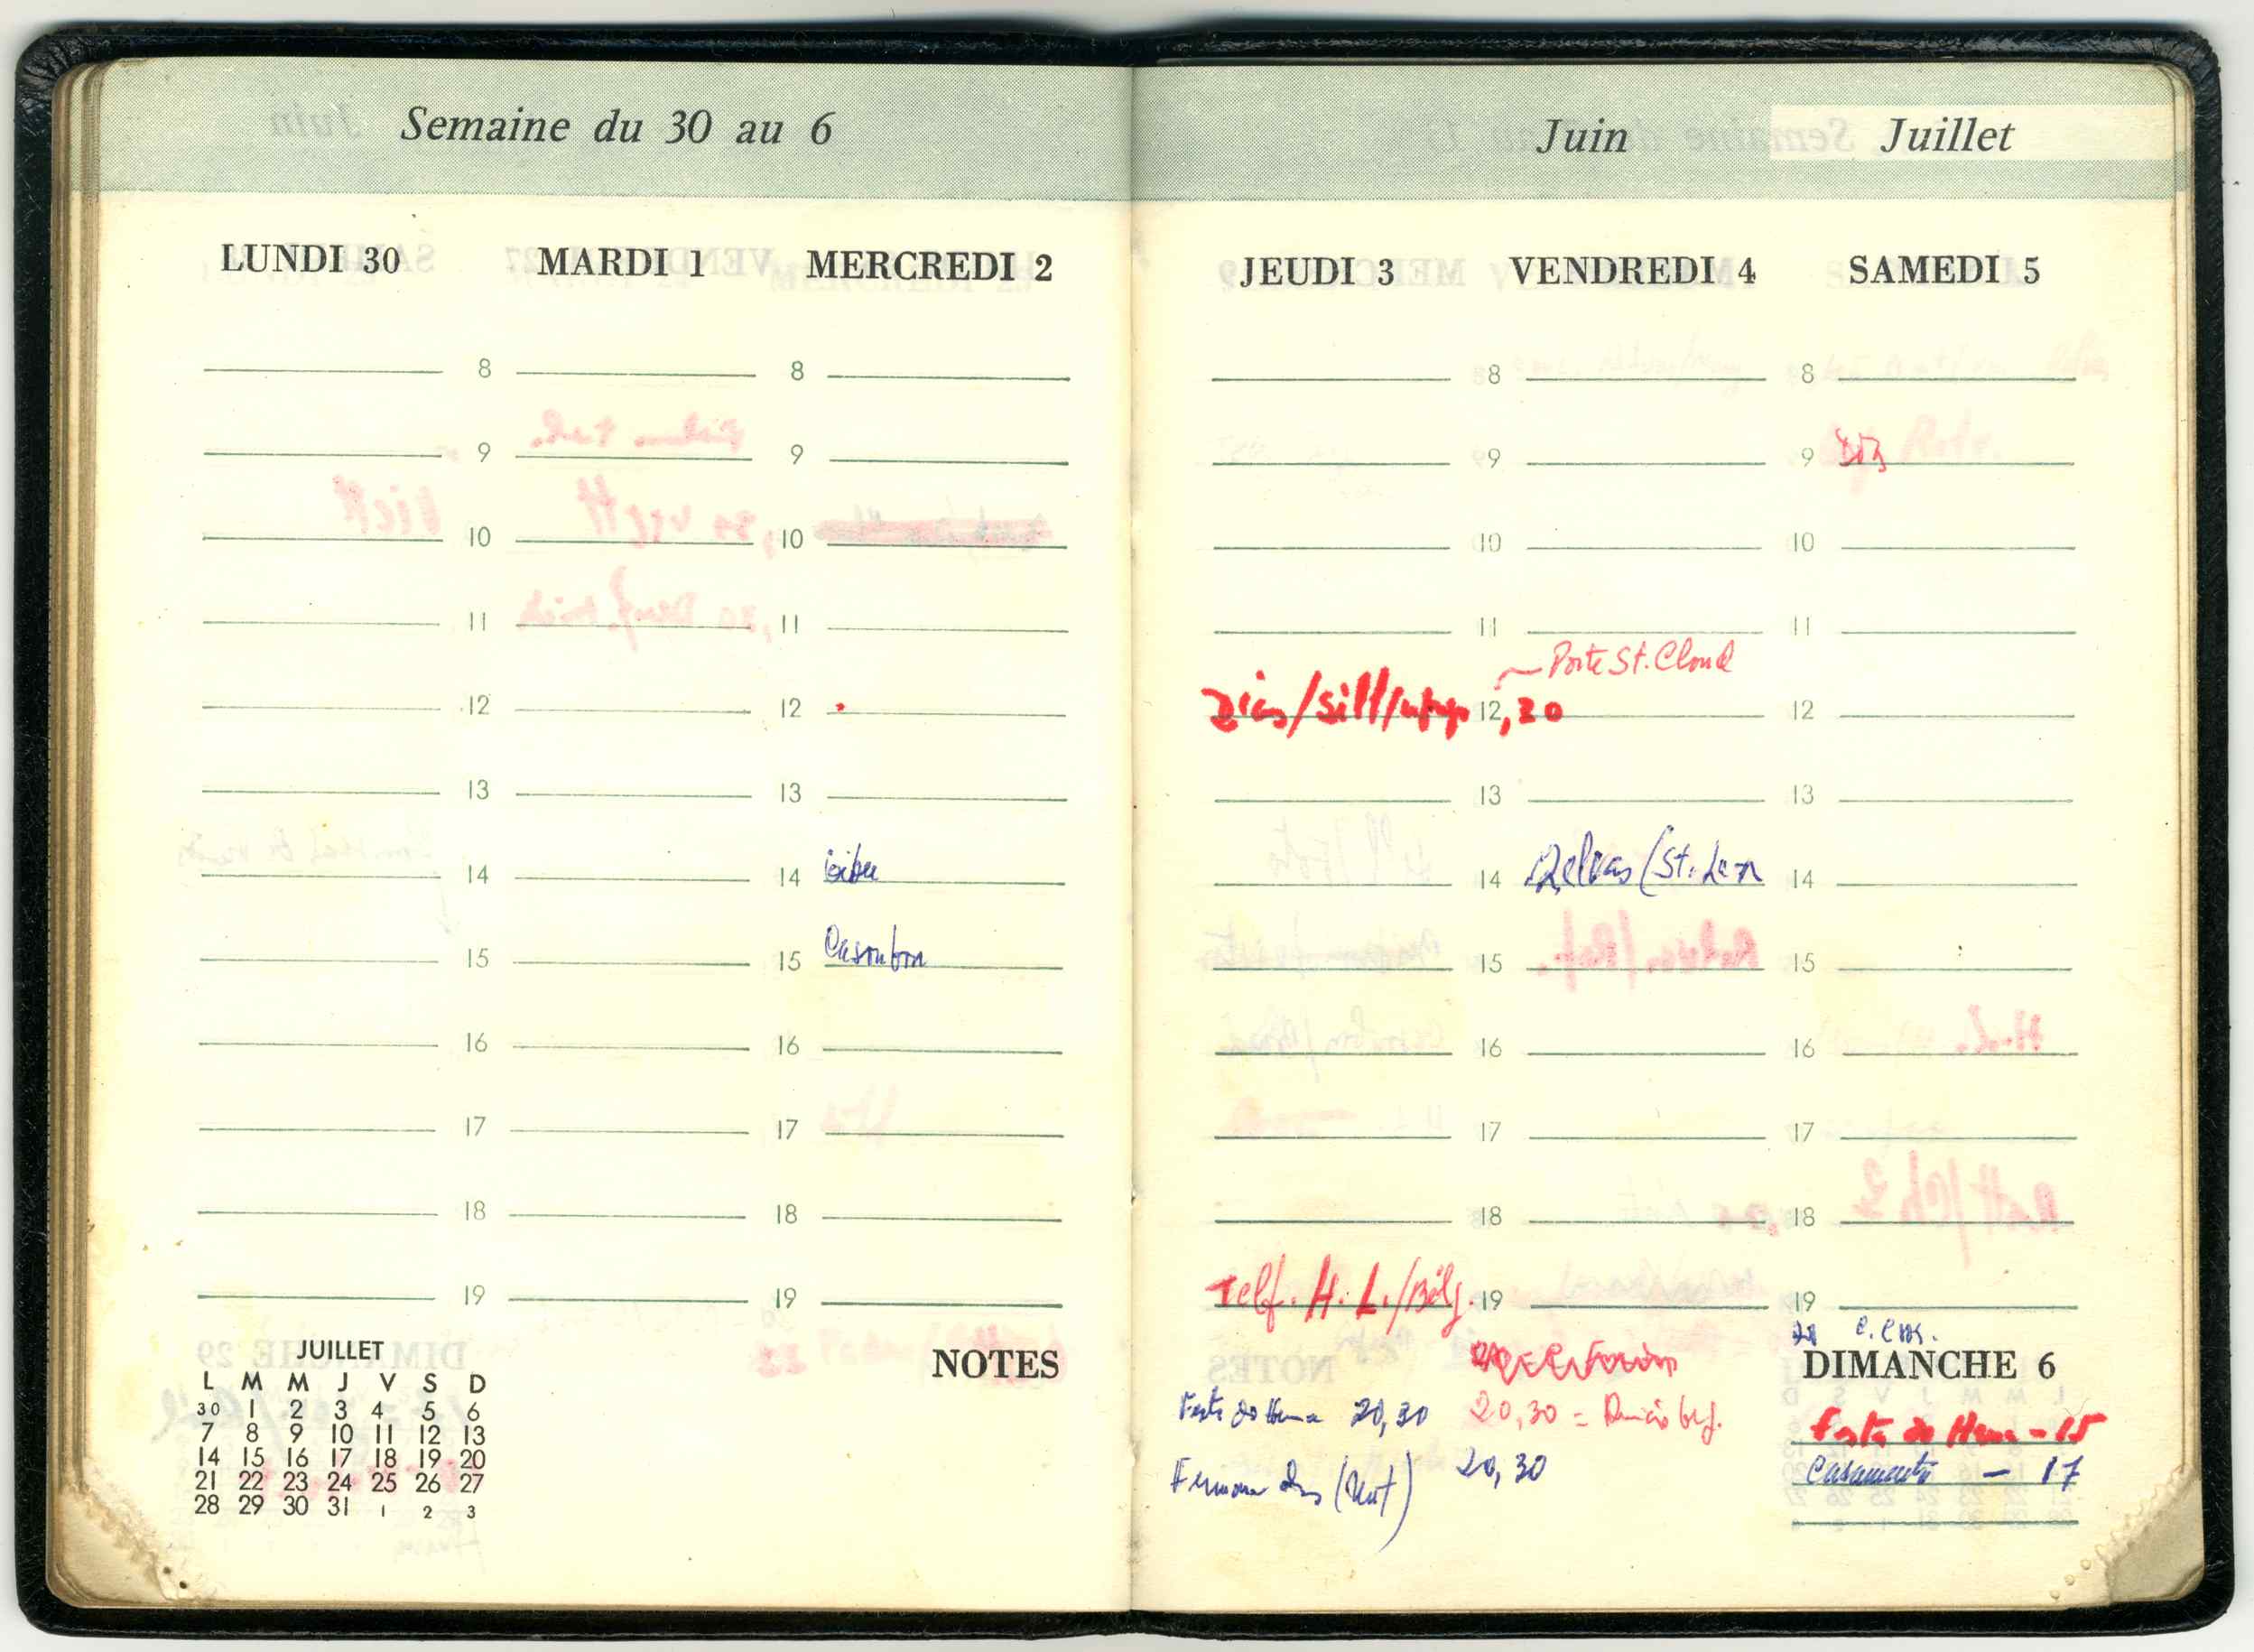 Semaine du 30 au 6
LUNDI 30 MARDI 1 MERCREDI 2
8 8
9 9
10 10
11 11
12 12
13 13
14 14
15 15
16 16
17 17
18 18
19 19
JUILLET
L M M J V S D
30 1 2 3 4 5 6
7 8 9 10 11 12 13
14 15 16 17 18 19 20
21 22 23 24 25 26 27
28 29 30 31 1 2 3
NOTES
Juin Juillet
JEUDI 3 VENDREDI 4 SAMEDI 5
8 8
9 9
10 10
11 11
Porte St. Cloud
Dias/Sill/ 12,30 12
13 13
14 Relvas (St. 14
15 15
16 16
17 17
18 18
Telf. H. L./Bélg. 19 19
DIMANCHE 6
20,30 20,30 =
Festa do Huma - 15
20,30
Casamento - 17